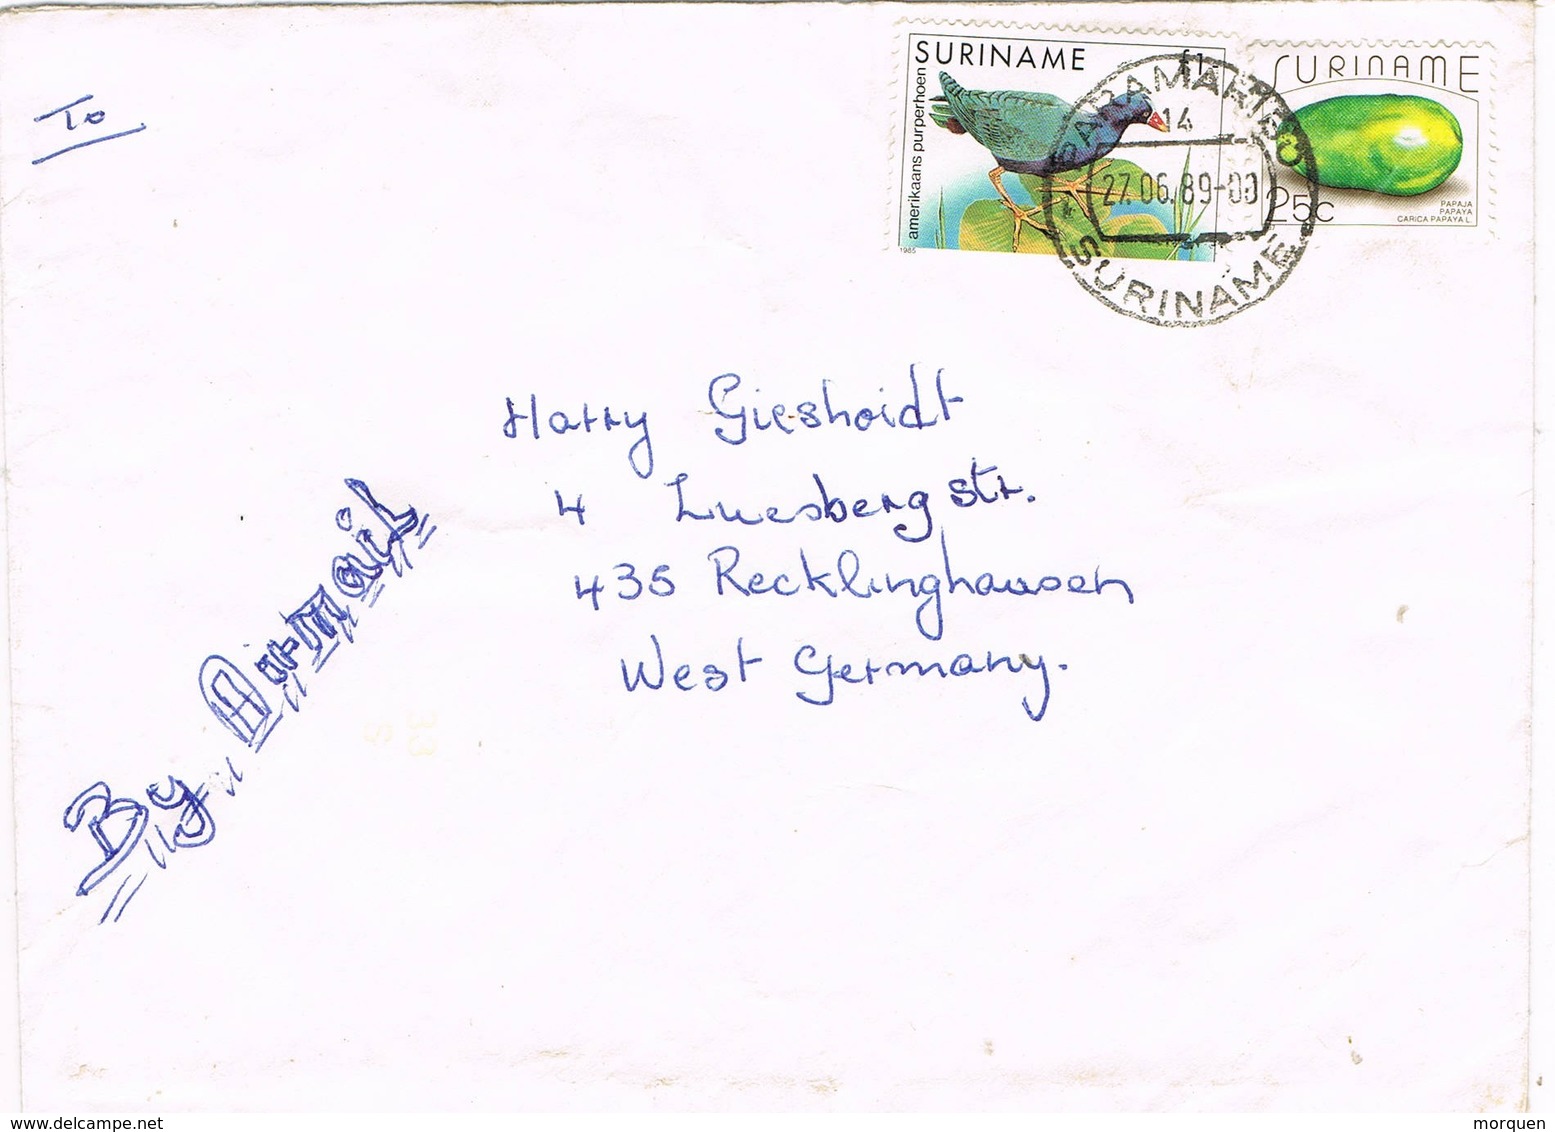 To
SURINAME
f1-
amerikaans purperhoen
1985
SURINAME
25c
PAPAJA
PAPAYA
CARICA PAPAYA L.
PARAMARIBO
14
27.06.89-00
SURINAME
Harry Gieshoidt
4 Luesberg str.
435 Recklinghausen
West Germany.
By Airmail
www.delcampe.net
morquen